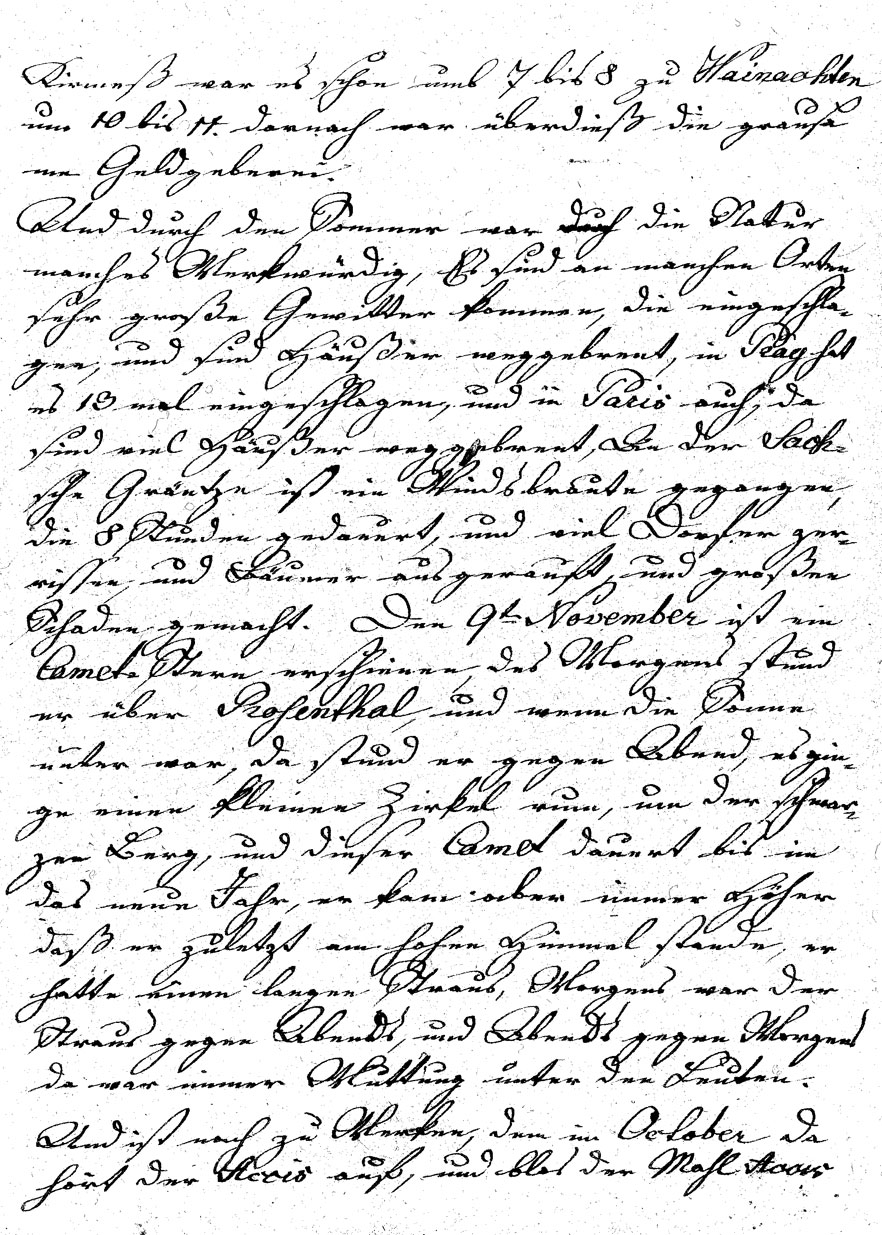 Kirmeß war es schon umb 7 bis 8 zu Wainachten
um 10 bis 11. darnach war überdieß die grausa
me Geldgeberei.
Und durch den Sommer war durch die Natur
manches Merkwürdig, Es sind an manchen Orten
sehr große Gewitter kommen, die eingeschla-
gen, und sind Häußer weggebrent, in Prag hat
es 13 mal eingeschlagen, und in Paris auch, da
sind viel Häußer weggebrent, An der Säch-
sche Gräntze ist ein Windsbraute gegangen,
die 8 Stunden gedauert, und viel Dorfer zer-
rissen, und Bäumer ausgerauft, und großen
Schaden gemacht. Den 9t November ist ein
Camet Stern erschienen, des Morgens stund
er über Rosenthal, und wenn die Sonne
unter war, da stund er gegen Abend, es gin-
ge einen kleinen Zirkel rum, um der schwar-
zen Berg, und dieser Camet dauert bis in
das neue Jahr, er kam aber immer Höher
daß er zuletzt am hohen Himmel stande, er
hatte einen langen Straus, Morgens war der
Straus gegen Abends, und Abends gegen Morgens
da war immer Muttung unter den Leuten.
Und ist noch zu Merken, dem im October da
hört der Accis auf, und blos der Mahl Accis